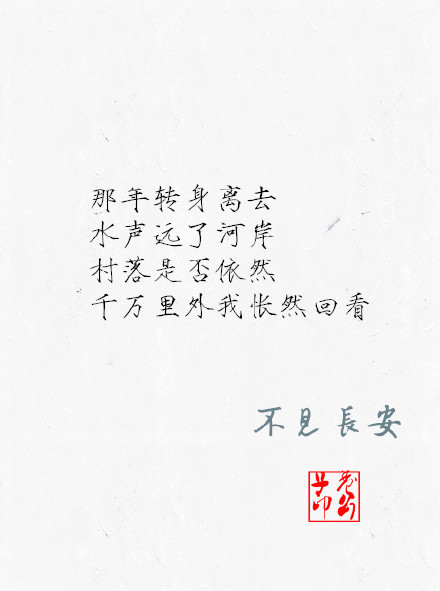 那年转身离去
水声远了河岸
村落是否依然
千万里外我怅然回看
不见長安